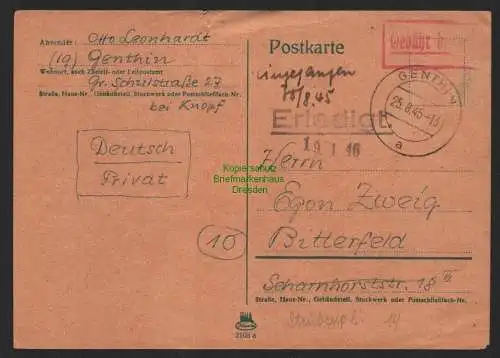 Absender: Otto Leonhardt
(19) Genthin
Wohnort, auch Zustell- oder Leitpostamt
Gr. Schulstraße 27
Straße, Haus-Nr., Gebäudeteil, Stockwerk oder Postschließfach-Nr.
bei Knopf
Deutsch
Privat
10
Postkarte
Gebühr
eingegangen
8.45
GENTHIN
25.8.45
a
Erledigt
19. 1. 46
Kipperschutz
Briefmarkenhaus
Dresden
Herrn
Egon Zweig
Bitterfeld
Scharnhorststr. 18 II
Straße, Haus-Nr., Gebäudeteil, Stockwerk oder Postschließfach-Nr.
2108 a